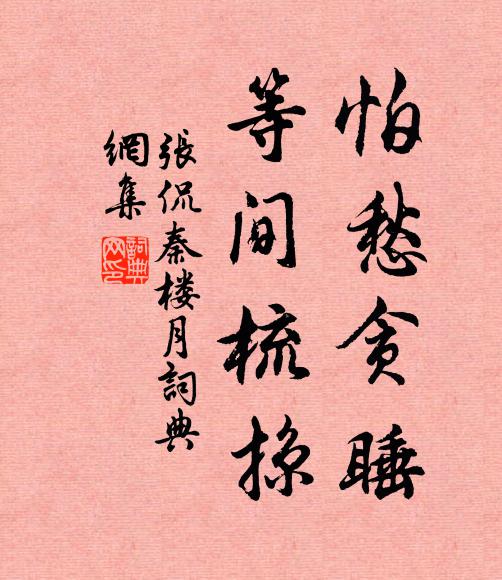 怕愁贪睡
等间梳掠
張侃秦楼月詞典
網集
詞典
网印